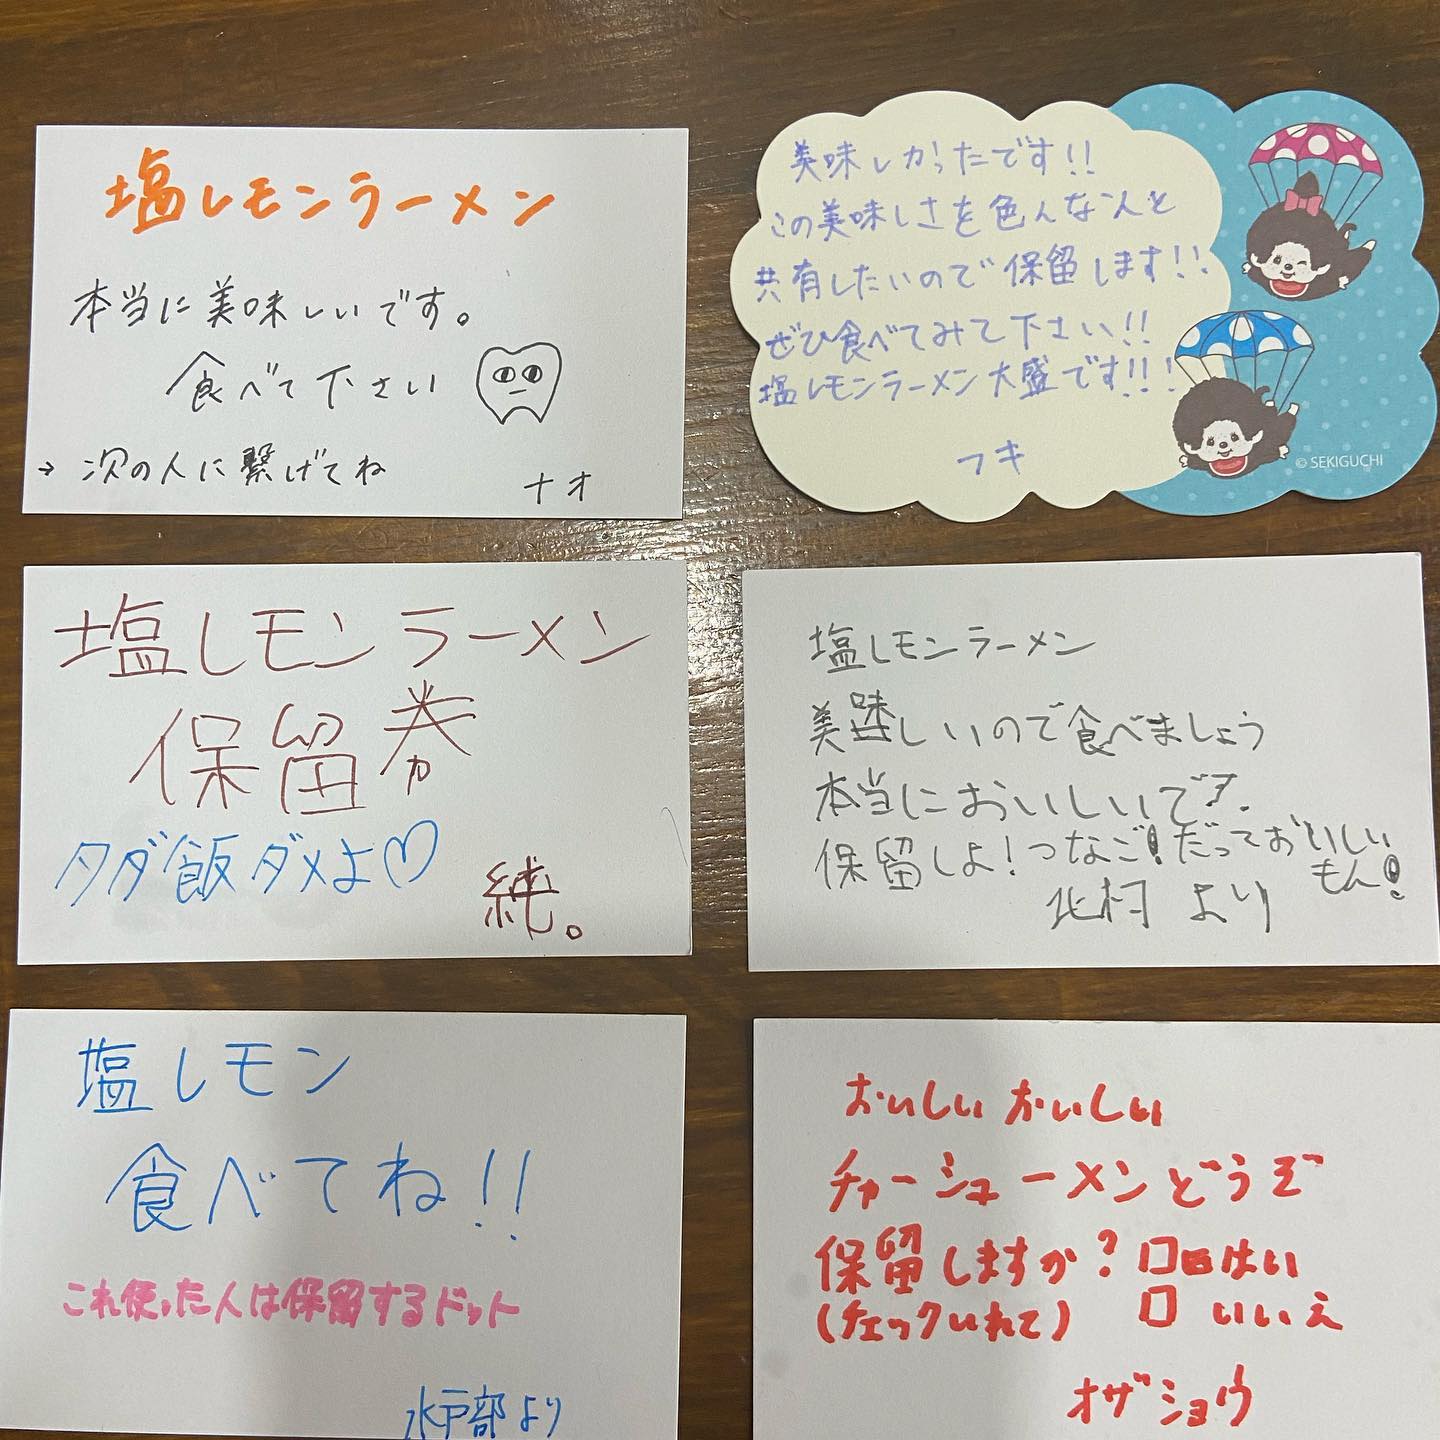 塩レモンラーメン
本当に美味しいです。
食べて下さい
→ 次の人に繋げてね
ナオ
美味しかったです!!
この美味しさを色んな人と
共有したいので保留します!!
ぜひ食べてみて下さい!!
塩レモンラーメン大盛です!!!
フキ
© SEKIGUCHI
塩レモンラーメン
保留券
タダ飯ダメよ♡
純。
塩レモンラーメン
美味しいので食べましょう
本当においしいです。
保留しよ!つなご!だっておいしい
もん!
北村 より
塩レモン
食べてね!!
これ使った人は保留するドット
水戸部より
おいしい おいしい
チャーシューメンどうぞ
保留しますか? □ はい
(チェックいれて) □ いいえ
オザショウ